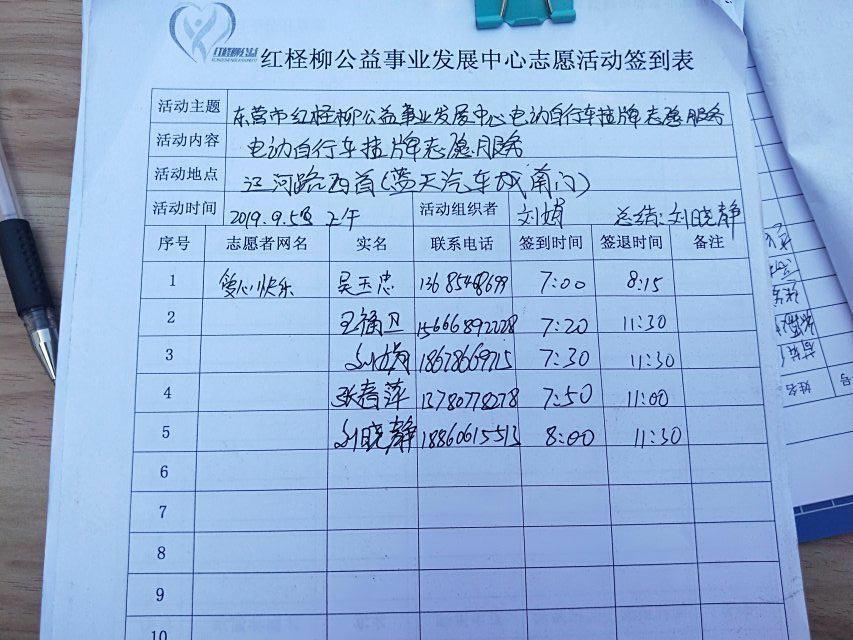 红柽柳公益
红柽柳公益事业发展中心志愿活动签到表
活动主题 东营市红柽柳公益事业发展中心电动自行车挂牌志愿服务
活动内容 电动自行车挂牌志愿服务
活动地点 江河路西首(蓝天汽车城南门)
活动时间 2019.9.5 上午 活动组织者 刘娟 总结:刘晓静
序号 志愿者网名 实名 联系电话 签到时间 签退时间 备注
1 爱心快乐 吴玉忠 7:00 8:15
2 王福卫 15666892228 7:20 11:30
3 18678669715 7:30 11:30
4 张春萍 13780778278 7:50 11:00
5 刘晓静 18860615513 8:00 11:30
6
7
8
9
10
姓名
号